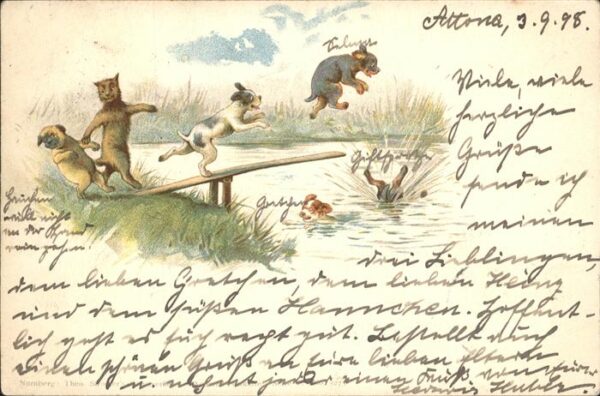 Altona, 3. 9. 98.
Viele, viele
herzliche
Grüße
sende ich
meinen
drei Lieblingen,
dem lieben Gretchen, dem lieben Heinz
und dem süßen Hannchen. Hoffent-
lich geht es Euch recht gut. Bestellt auch
einen schönen Gruß an Eure lieben Eltern
u. nehmt jeder einen Kuß von Eurer
Gretchen
will nicht
an der Hand
rein gehen.
Nürnberg: Theo.